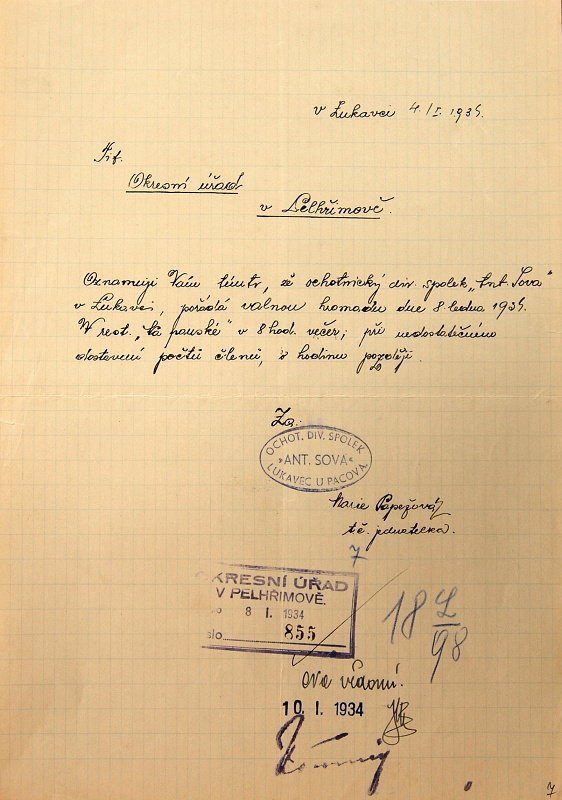 v Lukavci 4./I. 1934.
Okresní úřad
v Pelhřimově.
Oznamuji Vám tímto, že ochotnický div. spolek „Ant. Sova"
v Lukavci, pořádá valnou hromadu dne 8. ledna 1934.
V rest. „na panské" v 8 hod. večer; při nedostatičném
dostavení počtu členů, o hodinu později.
Za:
OCHOT. DIV. SPOLEK
»ANT. SOVA«
LUKAVEC U PACOVA.
Marie Papežová
t. č. jednatelka.
7
KRESNÍ ÚŘAD
V PELHŘIMOVĚ.
8 I. 1934
slo 855
18
98
Na vědomí.
10. I. 1934
7